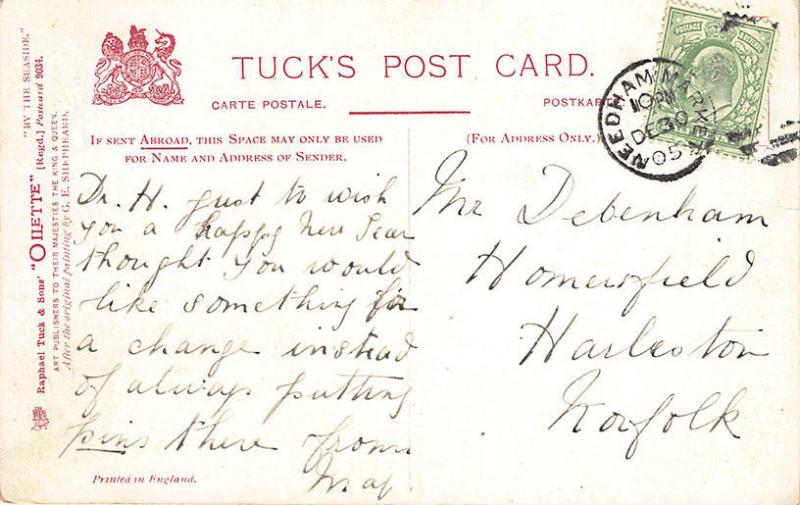 TUCK'S POST CARD.
CARTE POSTALE.
POSTKARTE.
IF SENT ABROAD, THIS SPACE MAY ONLY BE USED
FOR NAME AND ADDRESS OF SENDER.
(FOR ADDRESS ONLY.)
"BY THE SEASIDE."
Raphael Tuck & Sons' "OILETTE" [Regd.] Postcard 9034.
ART PUBLISHERS TO THEIR MAJESTIES THE KING & QUEEN.
After the original painting by G. E. SHEPHEARD.
Dr. H. Just to wish
you a happy New Year
thought you would
like something for
a change instead
of always putting
pins there from
May.
Mr Debenham
Homersfield
Harleston
Norfolk
NEEDHAM MARKET
10 PM
DE 30
05
POSTAGE
Printed in England.